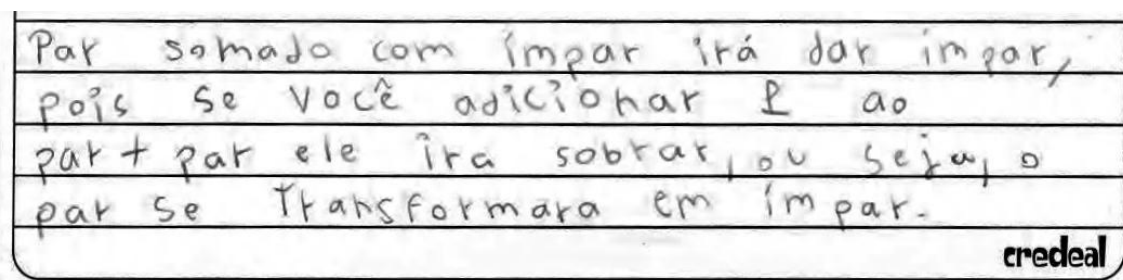 Par somado com ímpar irá dar ímpar,
pois se você adicionar 1 ao
par + par ele ira sobrar, ou seja, o
par se transformara em ímpar.
credeal